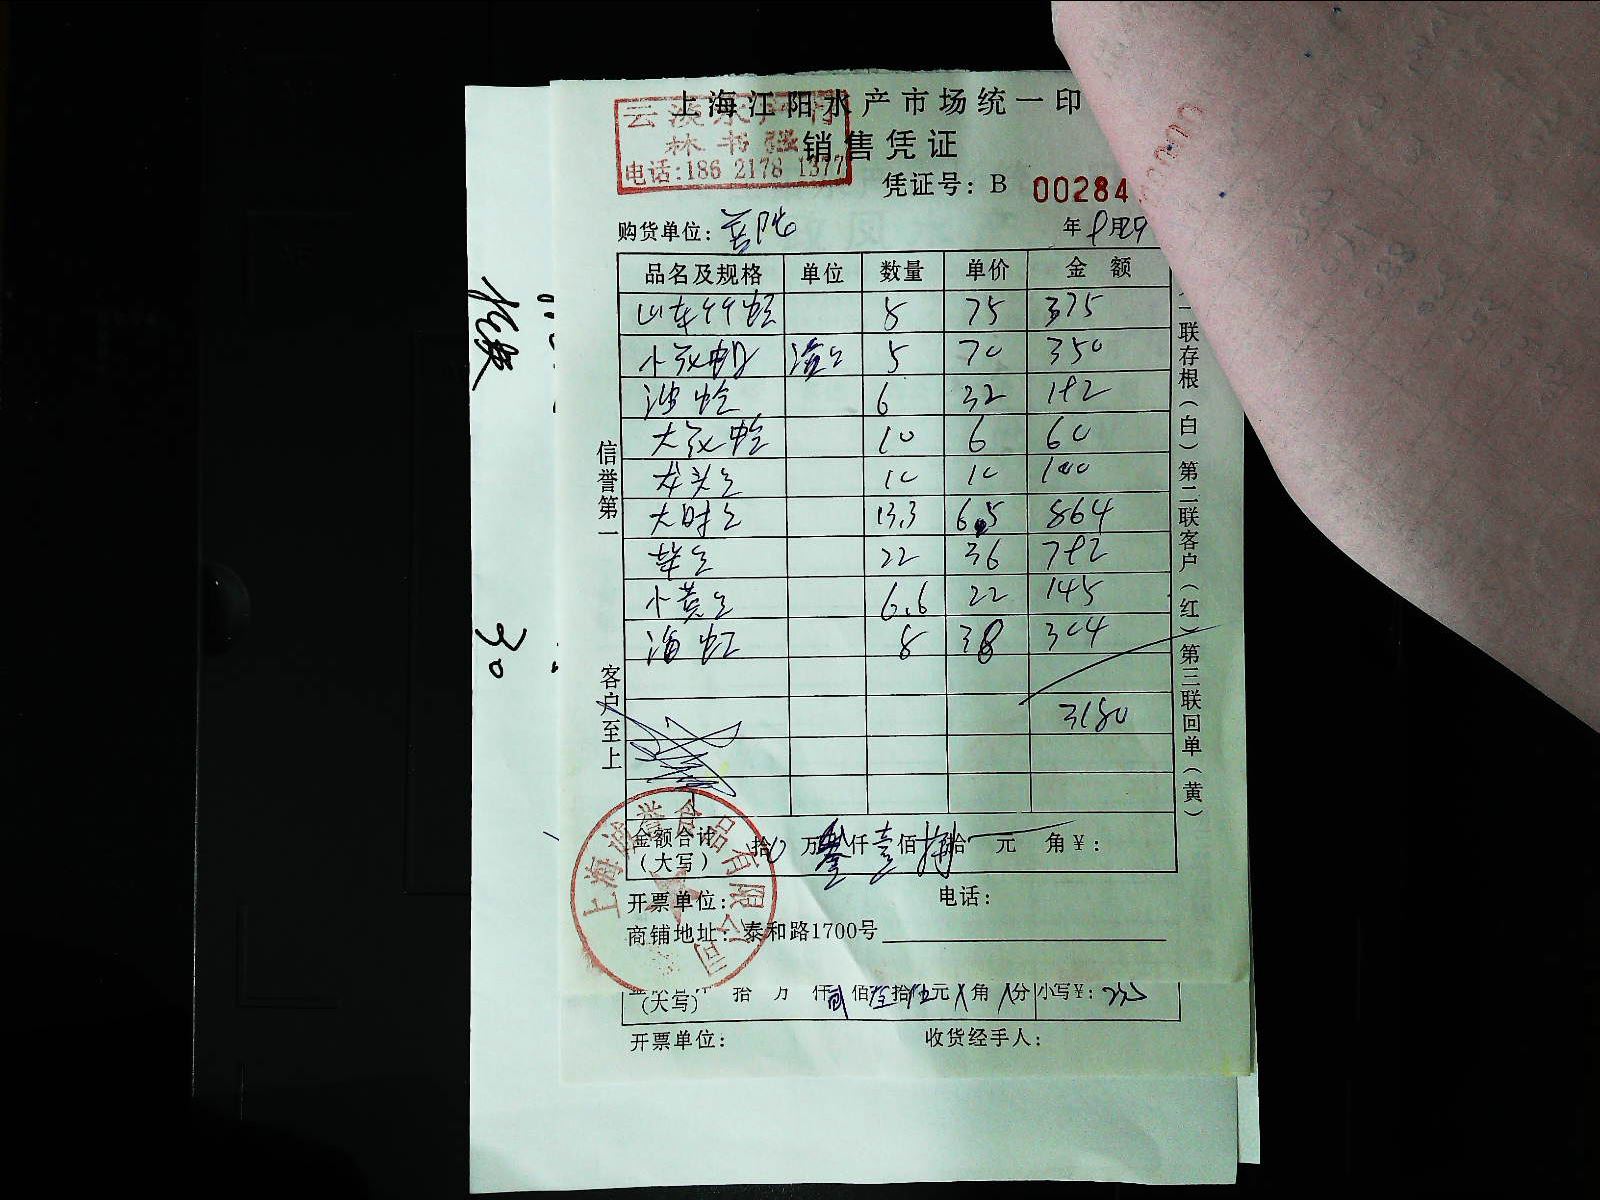 上海江阳水产市场统一印
云淡水产行
林书强
电话:186 2178 1377
销售凭证
凭证号: B 00284
购货单位: 普陀
年 9月29
品名及规格 单位 数量 单价 金额
8 75 375
5 70 350
6 32 192
大 10 6 60
龙头 10 10 100
大 13.3 6.5 864
22 36 792
小黄 6.6 22 145
海虹 8 38 304
3180
信誉第一
客户至上
一联存根(白)第二联客户(红)第三联回单(黄)
金额合计(大写) 拾 万叁仟壹佰捌拾 元 角¥:
上海诚誉食品有限公司
开票单位: 电话:
商铺地址: 泰和路1700号
(大写) 拾 万 仟贰佰叁拾伍元 角 分 小写¥: 235
开票单位: 收货经手人:
30